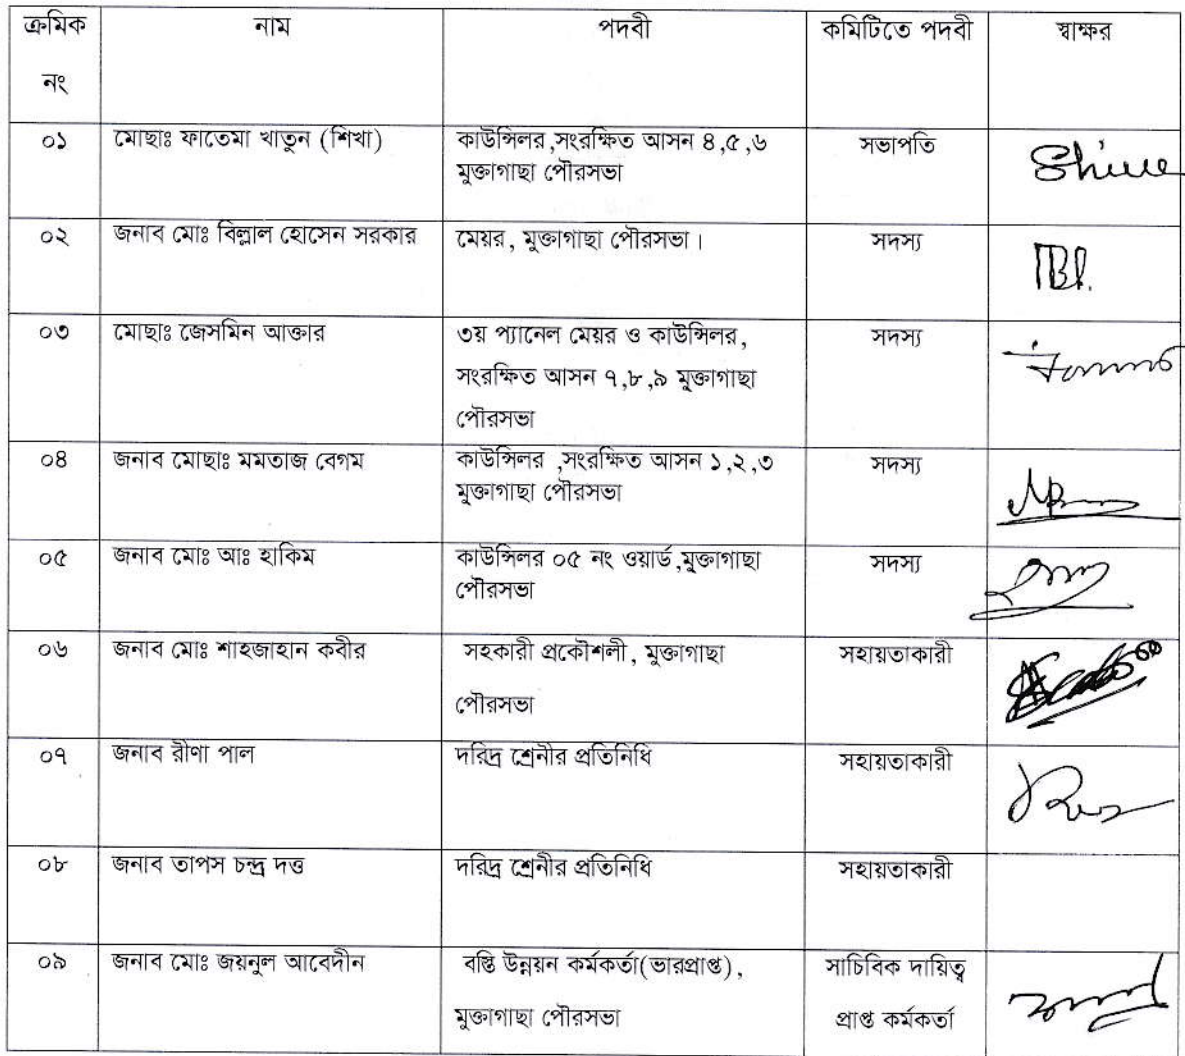 ক্রমিক নং নাম পদবী কমিটিতে পদবী স্বাক্ষর
০১ মোছাঃ ফাতেমা খাতুন (শিখা) কাউন্সিলর,সংরক্ষিত আসন ৪,৫,৬ সভাপতি
মুক্তাগাছা পৌরসভা
০২ জনাব মোঃ বিল্লাল হোসেন সরকার মেয়র, মুক্তাগাছা পৌরসভা। সদস্য
০৩ মোছাঃ জেসমিন আক্তার ৩য় প্যানেল মেয়র ও কাউন্সিলর, সদস্য
সংরক্ষিত আসন ৭,৮,৯ মুক্তাগাছা
পৌরসভা
০৪ জনাব মোছাঃ মমতাজ বেগম কাউন্সিলর ,সংরক্ষিত আসন ১,২,৩ সদস্য
মুক্তাগাছা পৌরসভা
০৫ জনাব মোঃ আঃ হাকিম কাউন্সিলর ০৫ নং ওয়ার্ড,মুক্তাগাছা সদস্য
পৌরসভা
০৬ জনাব মোঃ শাহজাহান কবীর সহকারী প্রকৌশলী, মুক্তাগাছা সহায়তাকারী
পৌরসভা
০৭ জনাব রীণা পাল দরিদ্র শ্রেনীর প্রতিনিধি সহায়তাকারী
০৮ জনাব তাপস চন্দ্র দত্ত দরিদ্র শ্রেনীর প্রতিনিধি সহায়তাকারী
০৯ জনাব মোঃ জয়নুল আবেদীন বস্তি উন্নয়ন কর্মকর্তা(ভারপ্রাপ্ত), সাচিবিক দায়িত্ব
মুক্তাগাছা পৌরসভা প্রাপ্ত কর্মকর্তা